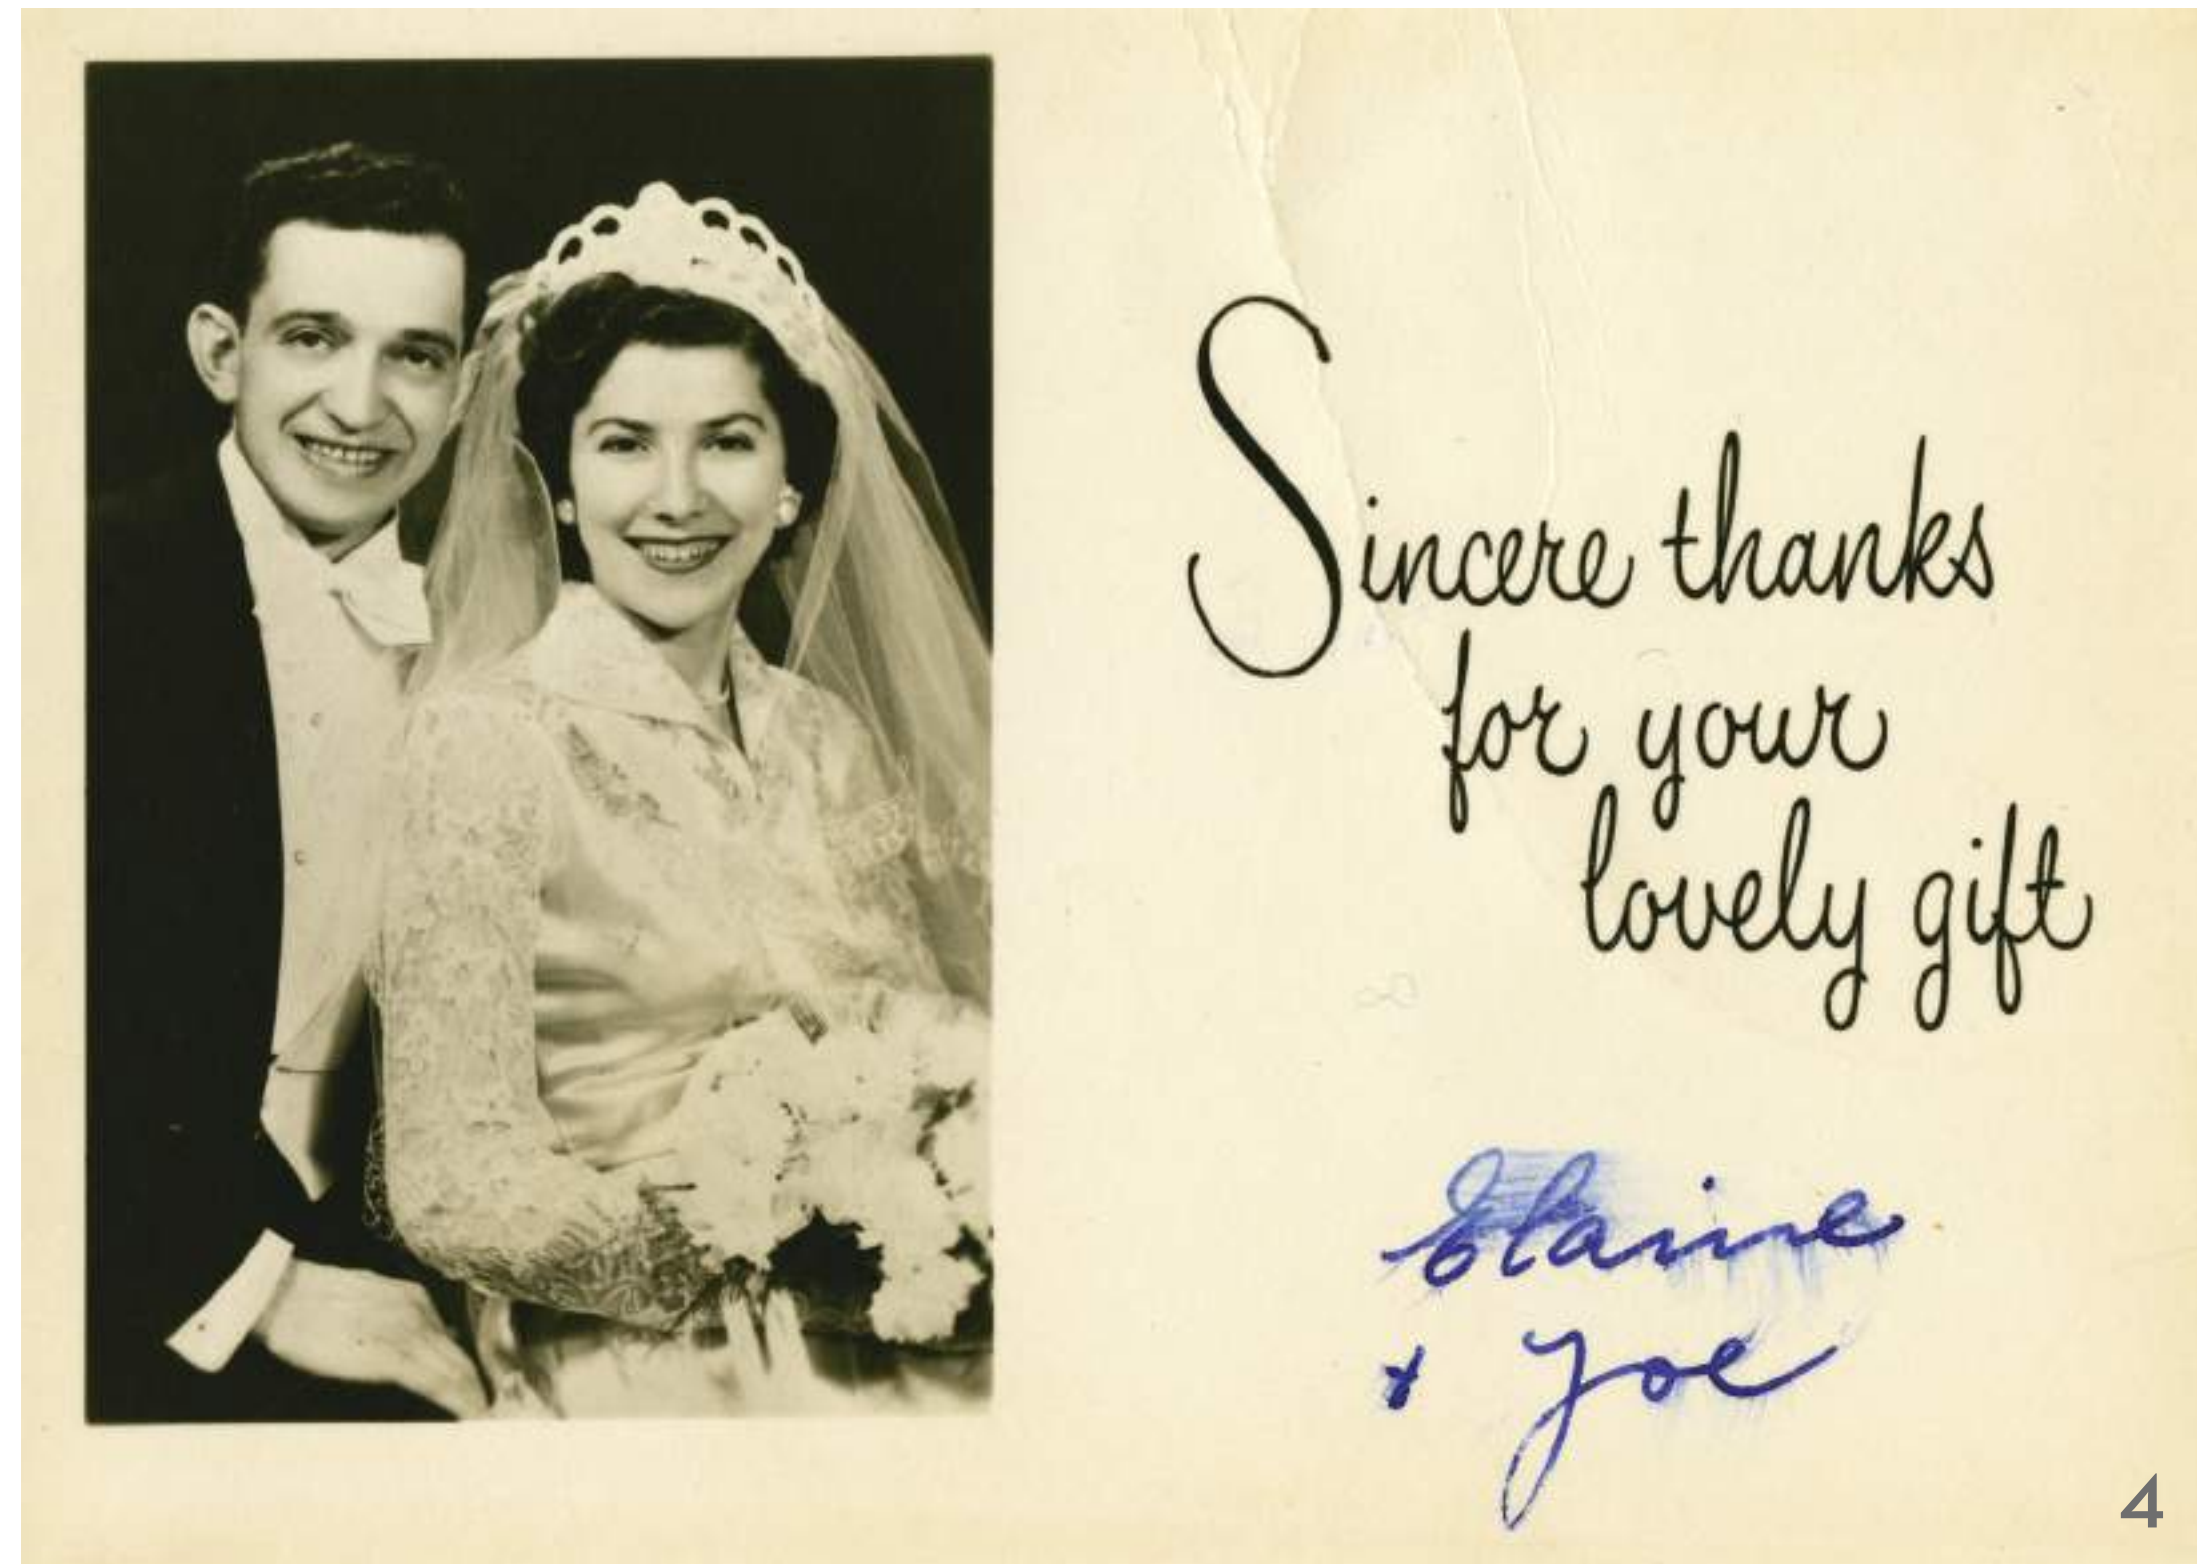 Sincere thanks
for your
lovely gift
Elaine
+ Joe
4